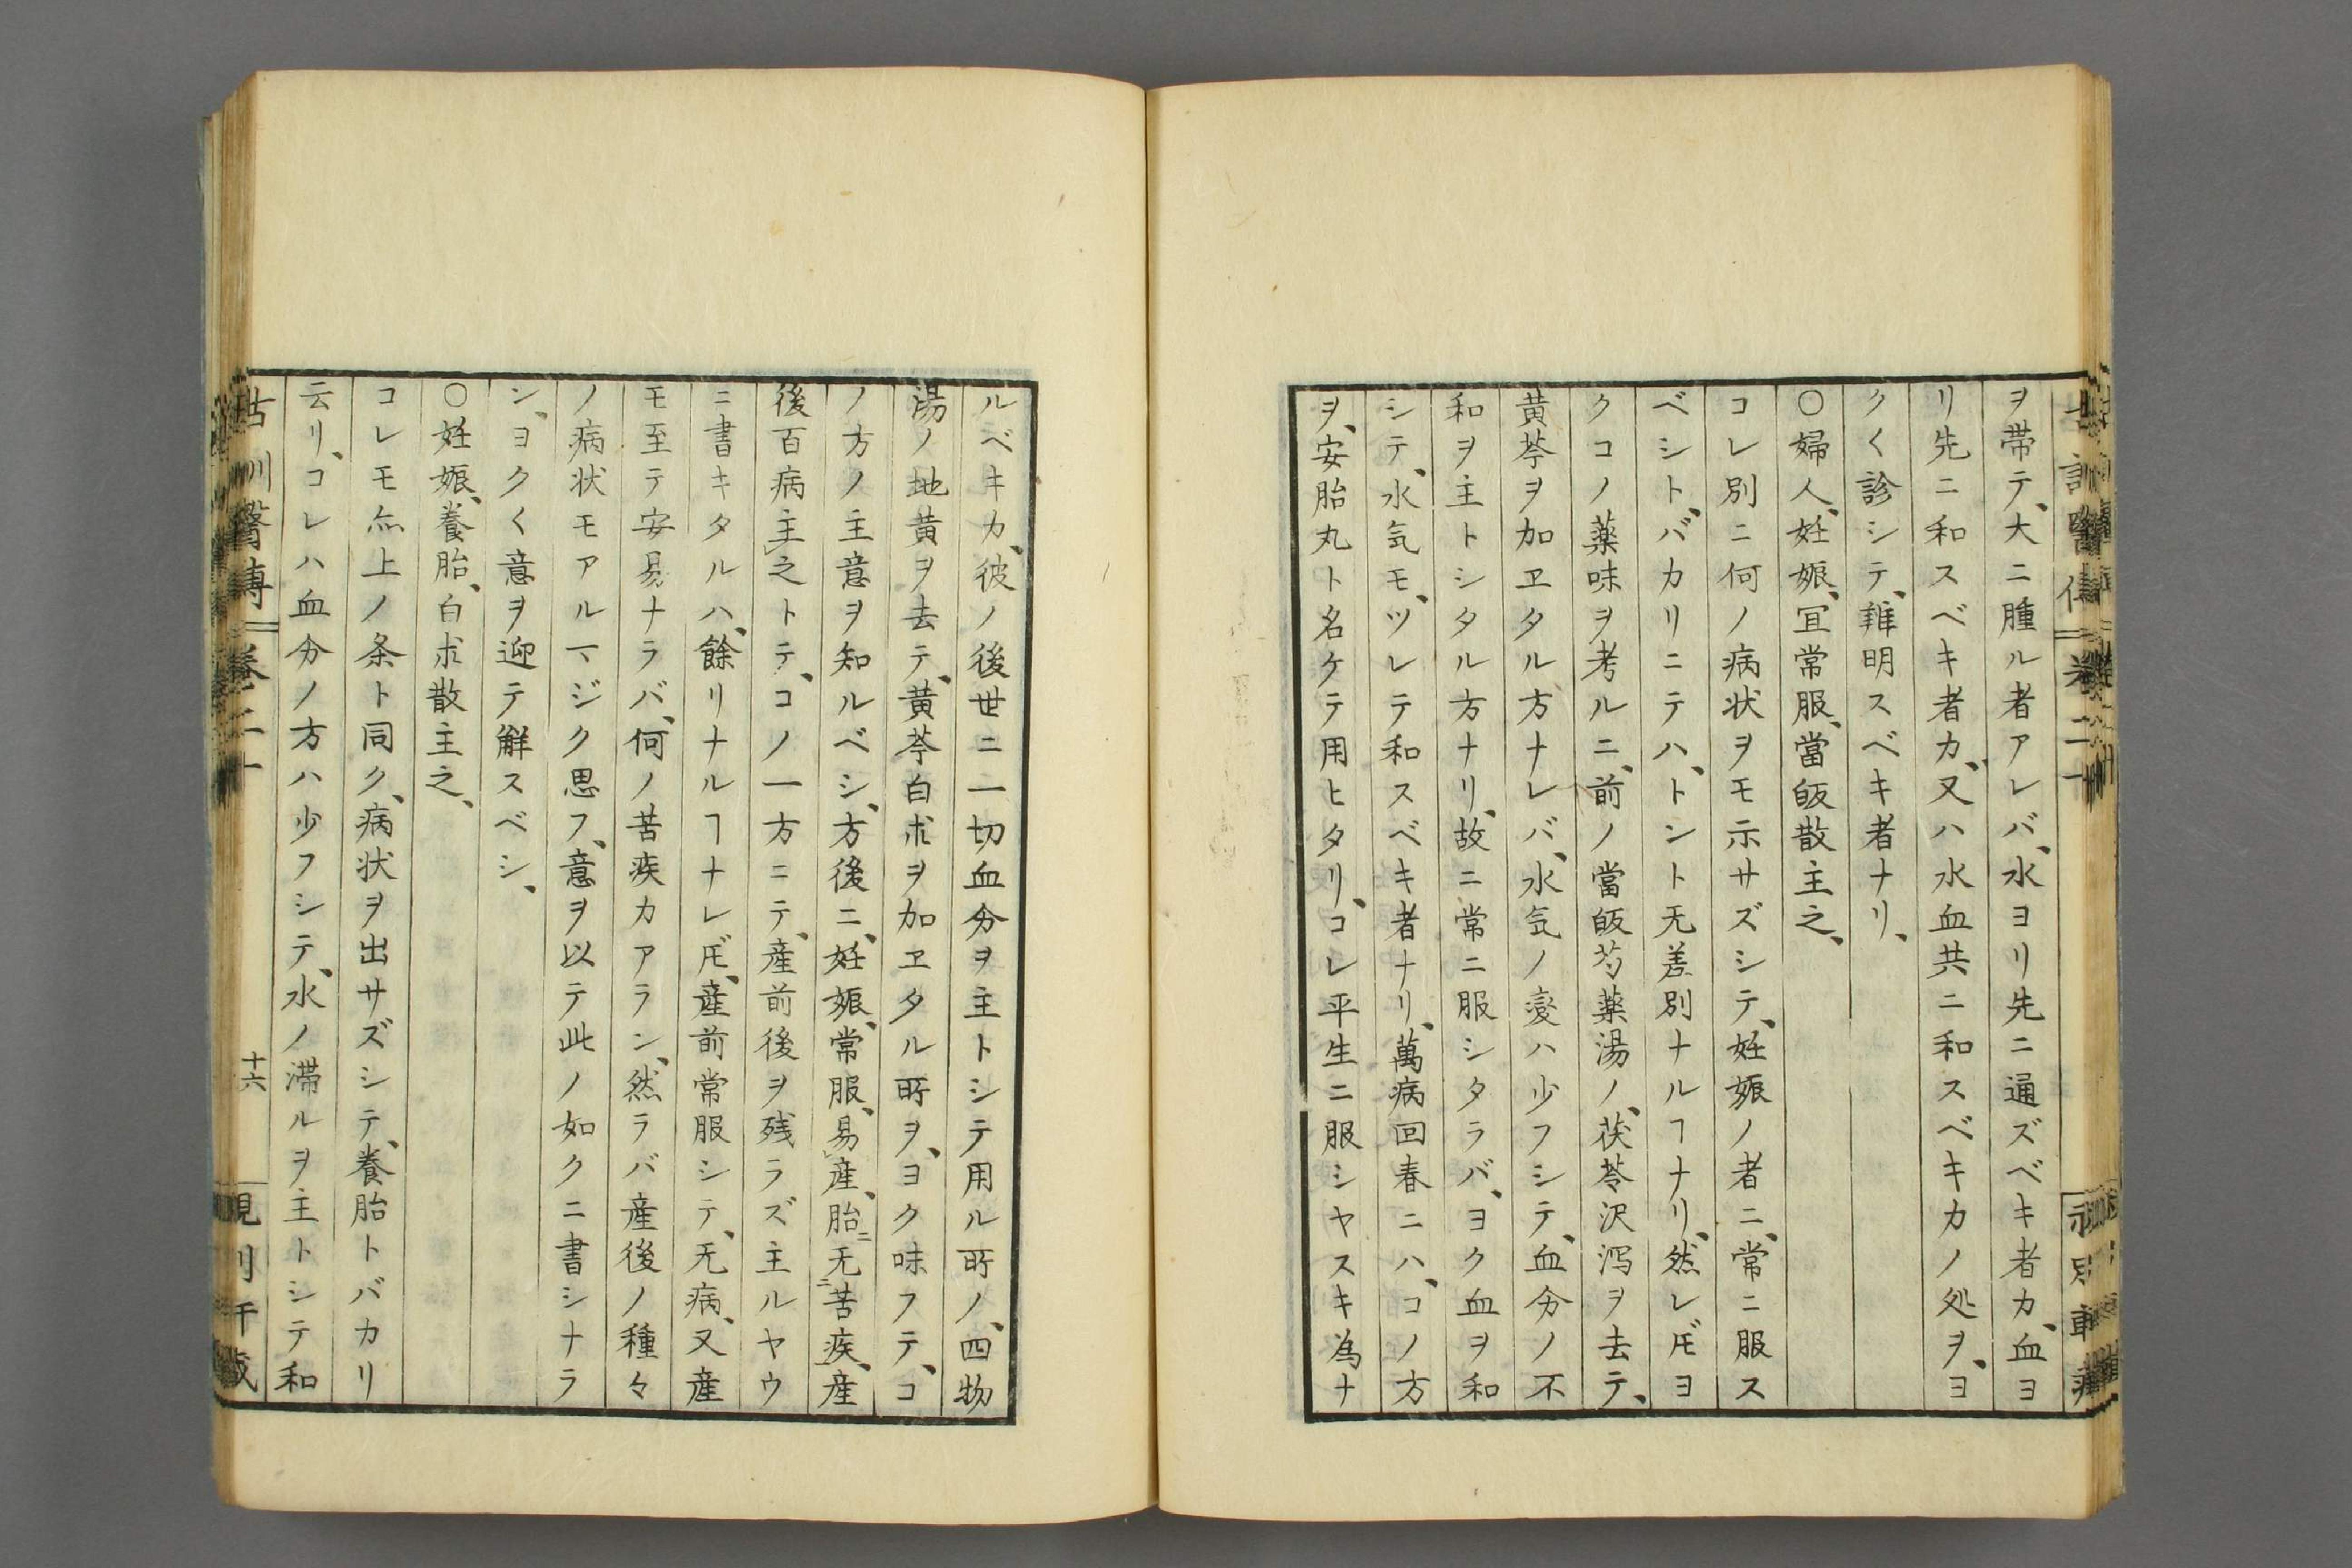 ヲ帯テ、大ニ腫ル者アレバ、水ヨリ先ニ通ズベキ者カ、血ヨ
リ先ニ和スベキ者カ、又ハ水血共ニ和スベキカノ処ヲ、ヨ
クく診シテ、辨明スベキ者ナリ、
〇婦人、妊娠、冝常服、當皈散主之、
コレ別ニ何ノ病状ヲモ示サズシテ、妊娠ノ者ニ、常ニ服ス
ベシト、バカリニテハ、トント无差別ナルヿナリ、然レ𪜈ヨ
クコノ薬味ヲ考ルニ、前ノ當皈芍薬湯ノ、茯苓沢瀉ヲ去テ、
黄芩ヲ加ヱタル方ナレバ、水気ノ変ハ少フシテ、血分ノ不
和ヲ主トシタル方ナリ、故ニ常ニ服シタラバ、ヨク血ヲ和
シテ、水気モ、ツレテ和スベキ者ナリ、萬病回春ニハ、コノ方
ヲ、安胎丸ト名ケテ用ヒタリ、コレ平生ニ服シヤスキ為ナ
ルベキカ、彼ノ後世ニ一切血分ヲ主トシテ用ル所ノ、四物
湯ノ地黄ヲ去テ、黄芩白朮ヲ加ヱタル所ヲ、ヨク味フテ、コ
ノ方ノ主意ヲ知ルベシ、方後ニ、妊娠、常服、易産、胎ニ无ニ苦疾、産
後百病主之トテ、コノ一方ニテ、産前後ヲ残ラズ主ルヤウ
ニ書キタルハ、餘リナルヿナレ𪜈、産前常服シテ、无病、又産
モ至テ安易ナラバ、何ノ苦疾カアラン、然ラバ産後ノ種々
ノ病状モアルマジク思フ、意ヲ以テ此ノ如クニ書シナラ
シ、ヨクく意ヲ迎テ解スベシ、
〇妊娠、養胎、白朮散主之、
コレモ亦上ノ条ト同ク、病状ヲ出サズシテ、養胎トバカリ
云リ、コレハ血分ノ方ハ少フシテ、水ノ滞ルヲ主トシテ和
十六